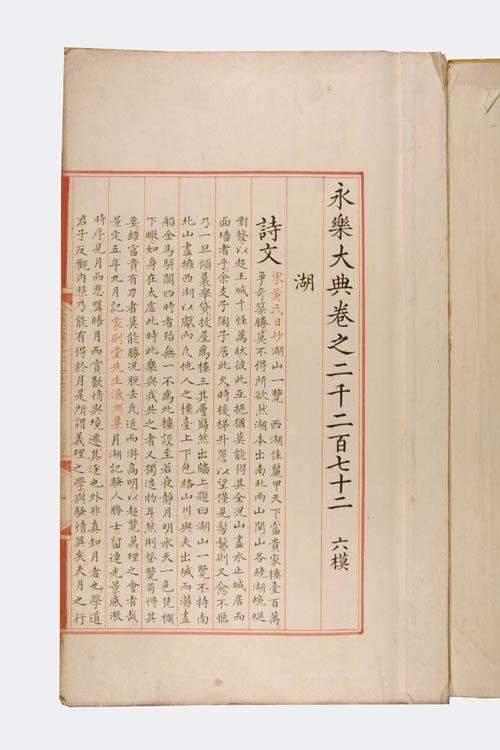 永樂大典卷之二千二百七十二 六模
湖
詩文 宋黃氏日抄 湖山一覽 西湖佳麗甲天下富貴家樓臺百萬
爭奇築勝莫不得所欲然湖本出南北兩山間山各繞湖蜿蜒
對發以趍王城千怪萬狀彼此互挹猶莫能得其全况山盡水止城居而
面墻者乎余友子陶子居此久時接梯升簷以望僅見髣髴則又愈不愜
乃一旦傾囊舉貸屋為樓三其層巋然出牆上題曰湖山一覽不特南
北山盡擁西湖以獻而凡他人之樓臺上下包絡山川與夫出城而游畫
船金馬駢闐四時者殆無一不為此樓設至若夜靜月明水天一色凭欄
下瞰如身在太虛此時此樂與我共之者又獨造物耳然則登覽苟得其
要雖富貴有力者莫能勝况脫去凡近而游高明以趍覽萬理之會者哉
景定五年九月記 家則堂先生瀛州集 月湖記騷人勝士留連光景感激
時序見月而悲晤月而賞歡情與境遷其逐也外非真知月者也學道
君子反觀內照乃能有得於月是所謂義理之學與騷情異矣夫月之行